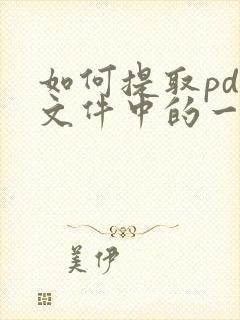 如何提取pd
文件中的一
美伊